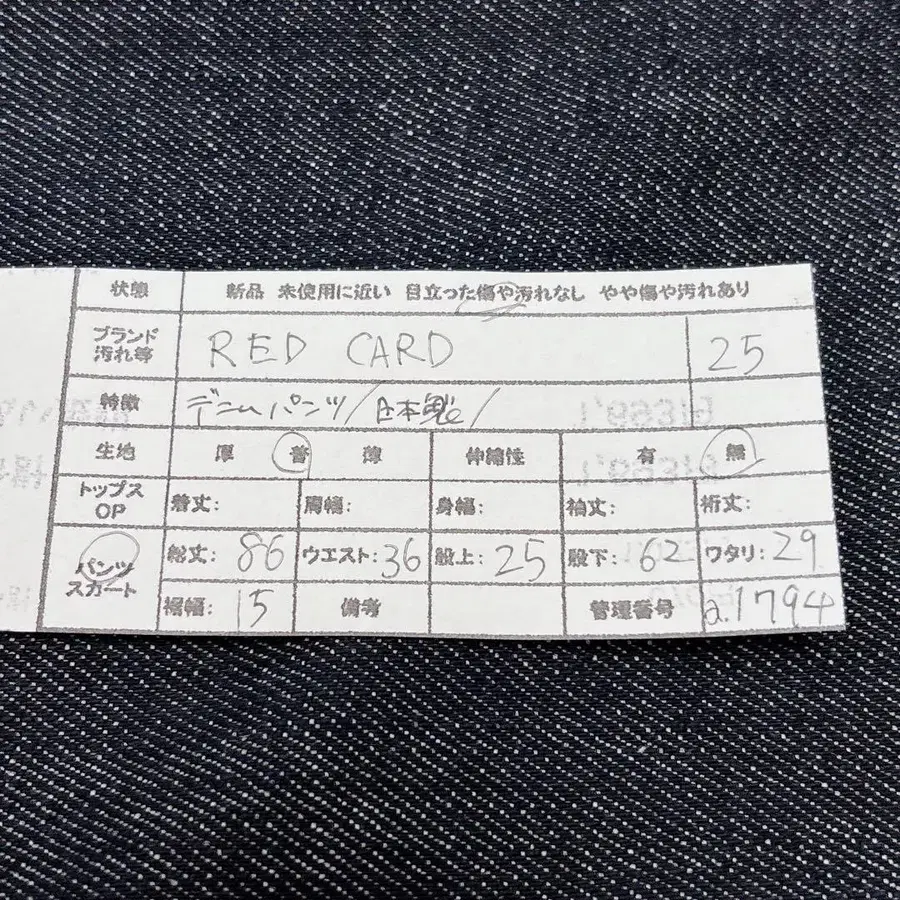 状態 新品 未使用に近い 目立った傷や汚れなし やや傷や汚れあり
ブランド
汚れ等 RED CARD 25
特徴 デニムパンツ/日本製/
生地 厚 普 薄 伸縮性 有 無
トップス
OP 着丈: 肩幅: 身幅: 袖丈: 裄丈:
パンツ
スカート 総丈: 86 ウエスト: 36 股上: 25 股下: 62 ワタリ: 29
裾幅: 15 備考 管理番号 a.1794